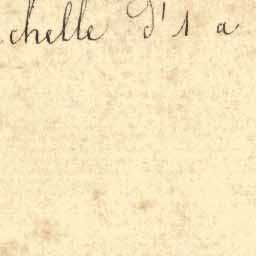 chelle d'1 a